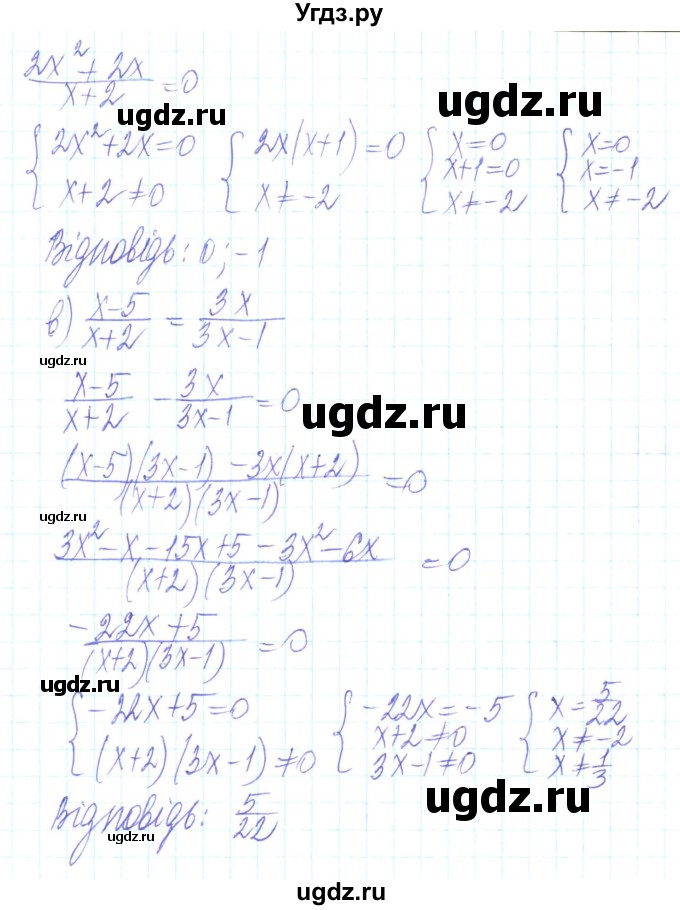 Угдз.ру
2x² + 2x / x+2 = 0
ugdz.ru ugdz.ru
{ 2x²+2x=0 { 2x(x+1)=0 { x=0 { x=0
x+1=0 x=-1
x+2≠0 x≠-2 x≠-2 x≠-2
Відповідь: 0; -1
в) x-5 / x+2 = 3x / 3x-1
ugdz.ru
x-5 / x+2 - 3x / 3x-1 = 0
ugdz.ru
(x-5)(3x-1) - 3x(x+2) / (x+2)(3x-1) = 0
ugdz.ru
3x²-x-15x+5-3x²-6x / (x+2)(3x-1) = 0
-22x+5 / (x+2)(3x-1) = 0
ugdz.ru ugdz.ru
{ -22x+5=0 { -22x=-5 { x=5/22
x+2≠0 x≠-2
(x+2)(3x-1)≠0 3x-1≠0 x≠1/3
ugdz.ru
Відповідь: 5/22
ugdz.ru
ugdz.ru